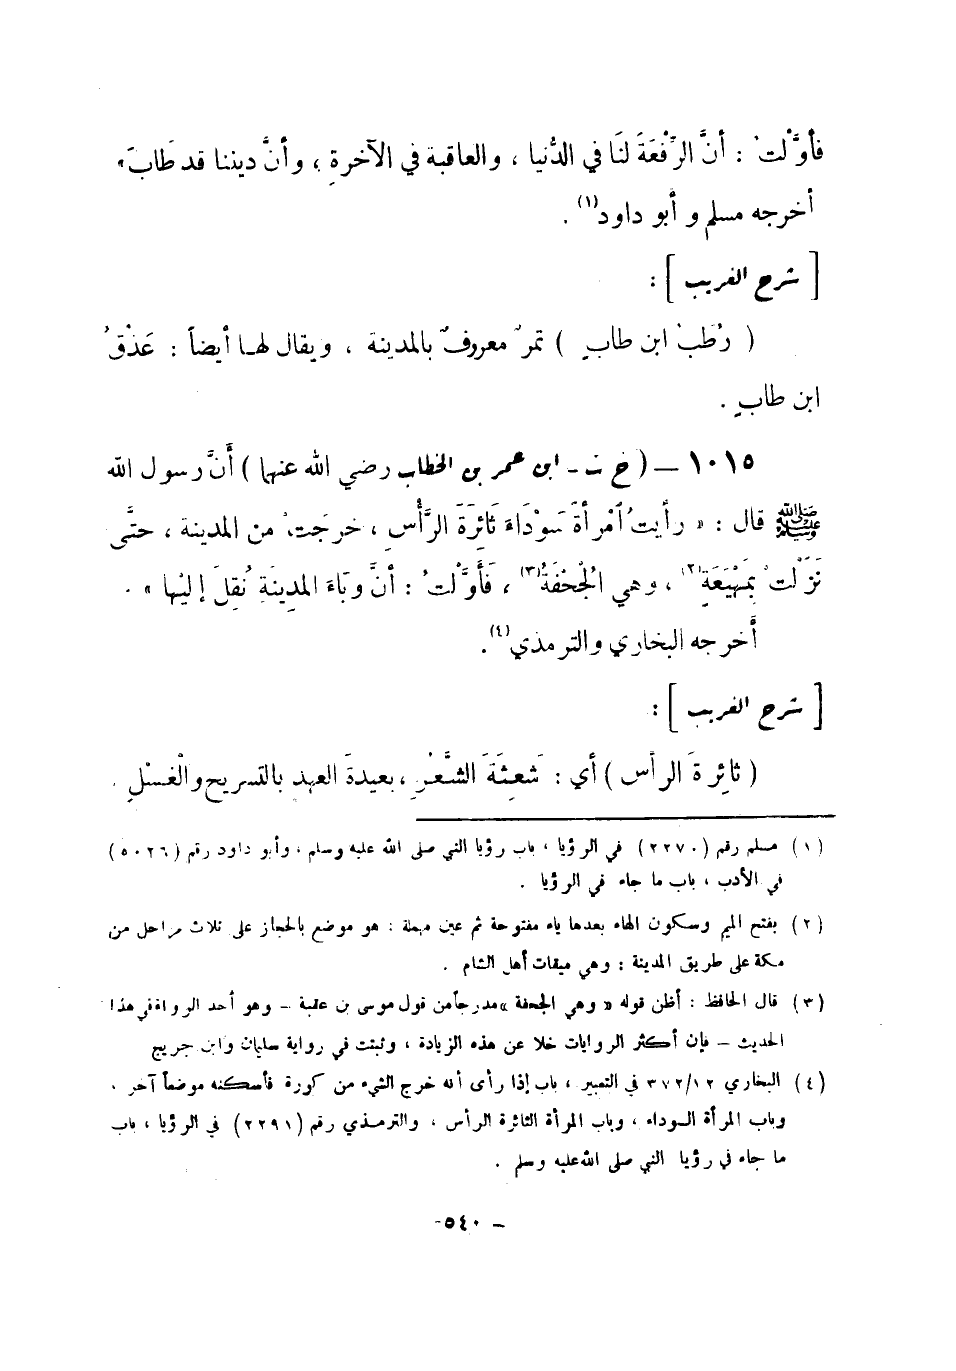 فأوَّلْتُ : أنَّ الرِّفْعَةَ لنَا في الدُّنيا ، والعاقبة في الآخرةِ ، وأنَّ ديننا قد طَابَ »
أخرجه مسلم و أبو داود(١) .
[ شرح الغريب ] :
( رُطَبْ ابن طابٍ ) تمرٌ معروفٌ بالمدينة ، ويقال لهـا أيضاً : عَذْقُ
ابن طابٍ .
١٠١٥ – ( خ ت - ابن عمر بن الخطاب رضي الله عنهما ) أَنَّ رسول الله
ﷺ قال : « رأيتُ امْرأةً سَوْدَاءَ ثَائِرَةَ الرَّأْسِ ، خرجَتْ من المدينة ، حتَّى
نَزَلَتْ بِمَهْيَعَةٍ(٢) ، وهي الْجُحْفَةُ(٣) ، فَأَوَّلتُ : أنَّ وبَاءَ المدِينَةِ نُقِلَ إليْها » .
أخرجه البخاري والترمذي(٤) .
[ شرح الغريب ] :
( ثائِرةَ الرأس ) أي : شَعِثَةَ الشَّعْرِ ، بعيدةَ العهدِ بالتسريح والْغَسْلِ .
(١) مسلم رقم (٢٢٧٠) في الرؤيا ، باب رؤيا النبي صلى الله عليه وسلم ، وأبو داود رقم (٥٠٢٦)
في الأدب ، باب ما جاء في الرؤيا .
(٢) بفتح الميم وسكون الهاء بعدها ياء مفتوحة ثم عين مهملة : هو موضع بالحجاز على ثلاث مراحل من
مكة على طريق المدينة : وهي ميقات أهل الشام .
(٣) قال الحافظ : أظن قوله « وهي الجحفة » مدرجاً من قول موسى بن عقبة – وهو أحد الرواة في هذا
الحديث – فإن أكثر الروايات خلا عن هذه الزيادة ، وثبتت في رواية سليمان وابن جريج
(٤) البخاري ٣٧٢/١٢ في التعبير ، باب إذا رأى أنه خرج الشيء من كورة فأسكنه موضعاً آخر ،
وباب المرأة السوداء ، وباب المرأة الثائرة الرأس ، والترمذي رقم (٢٢٩١) في الرؤيا ، باب
ما جاء في رؤيا النبي صلى الله عليه وسلم .
– ٥٤٠ -